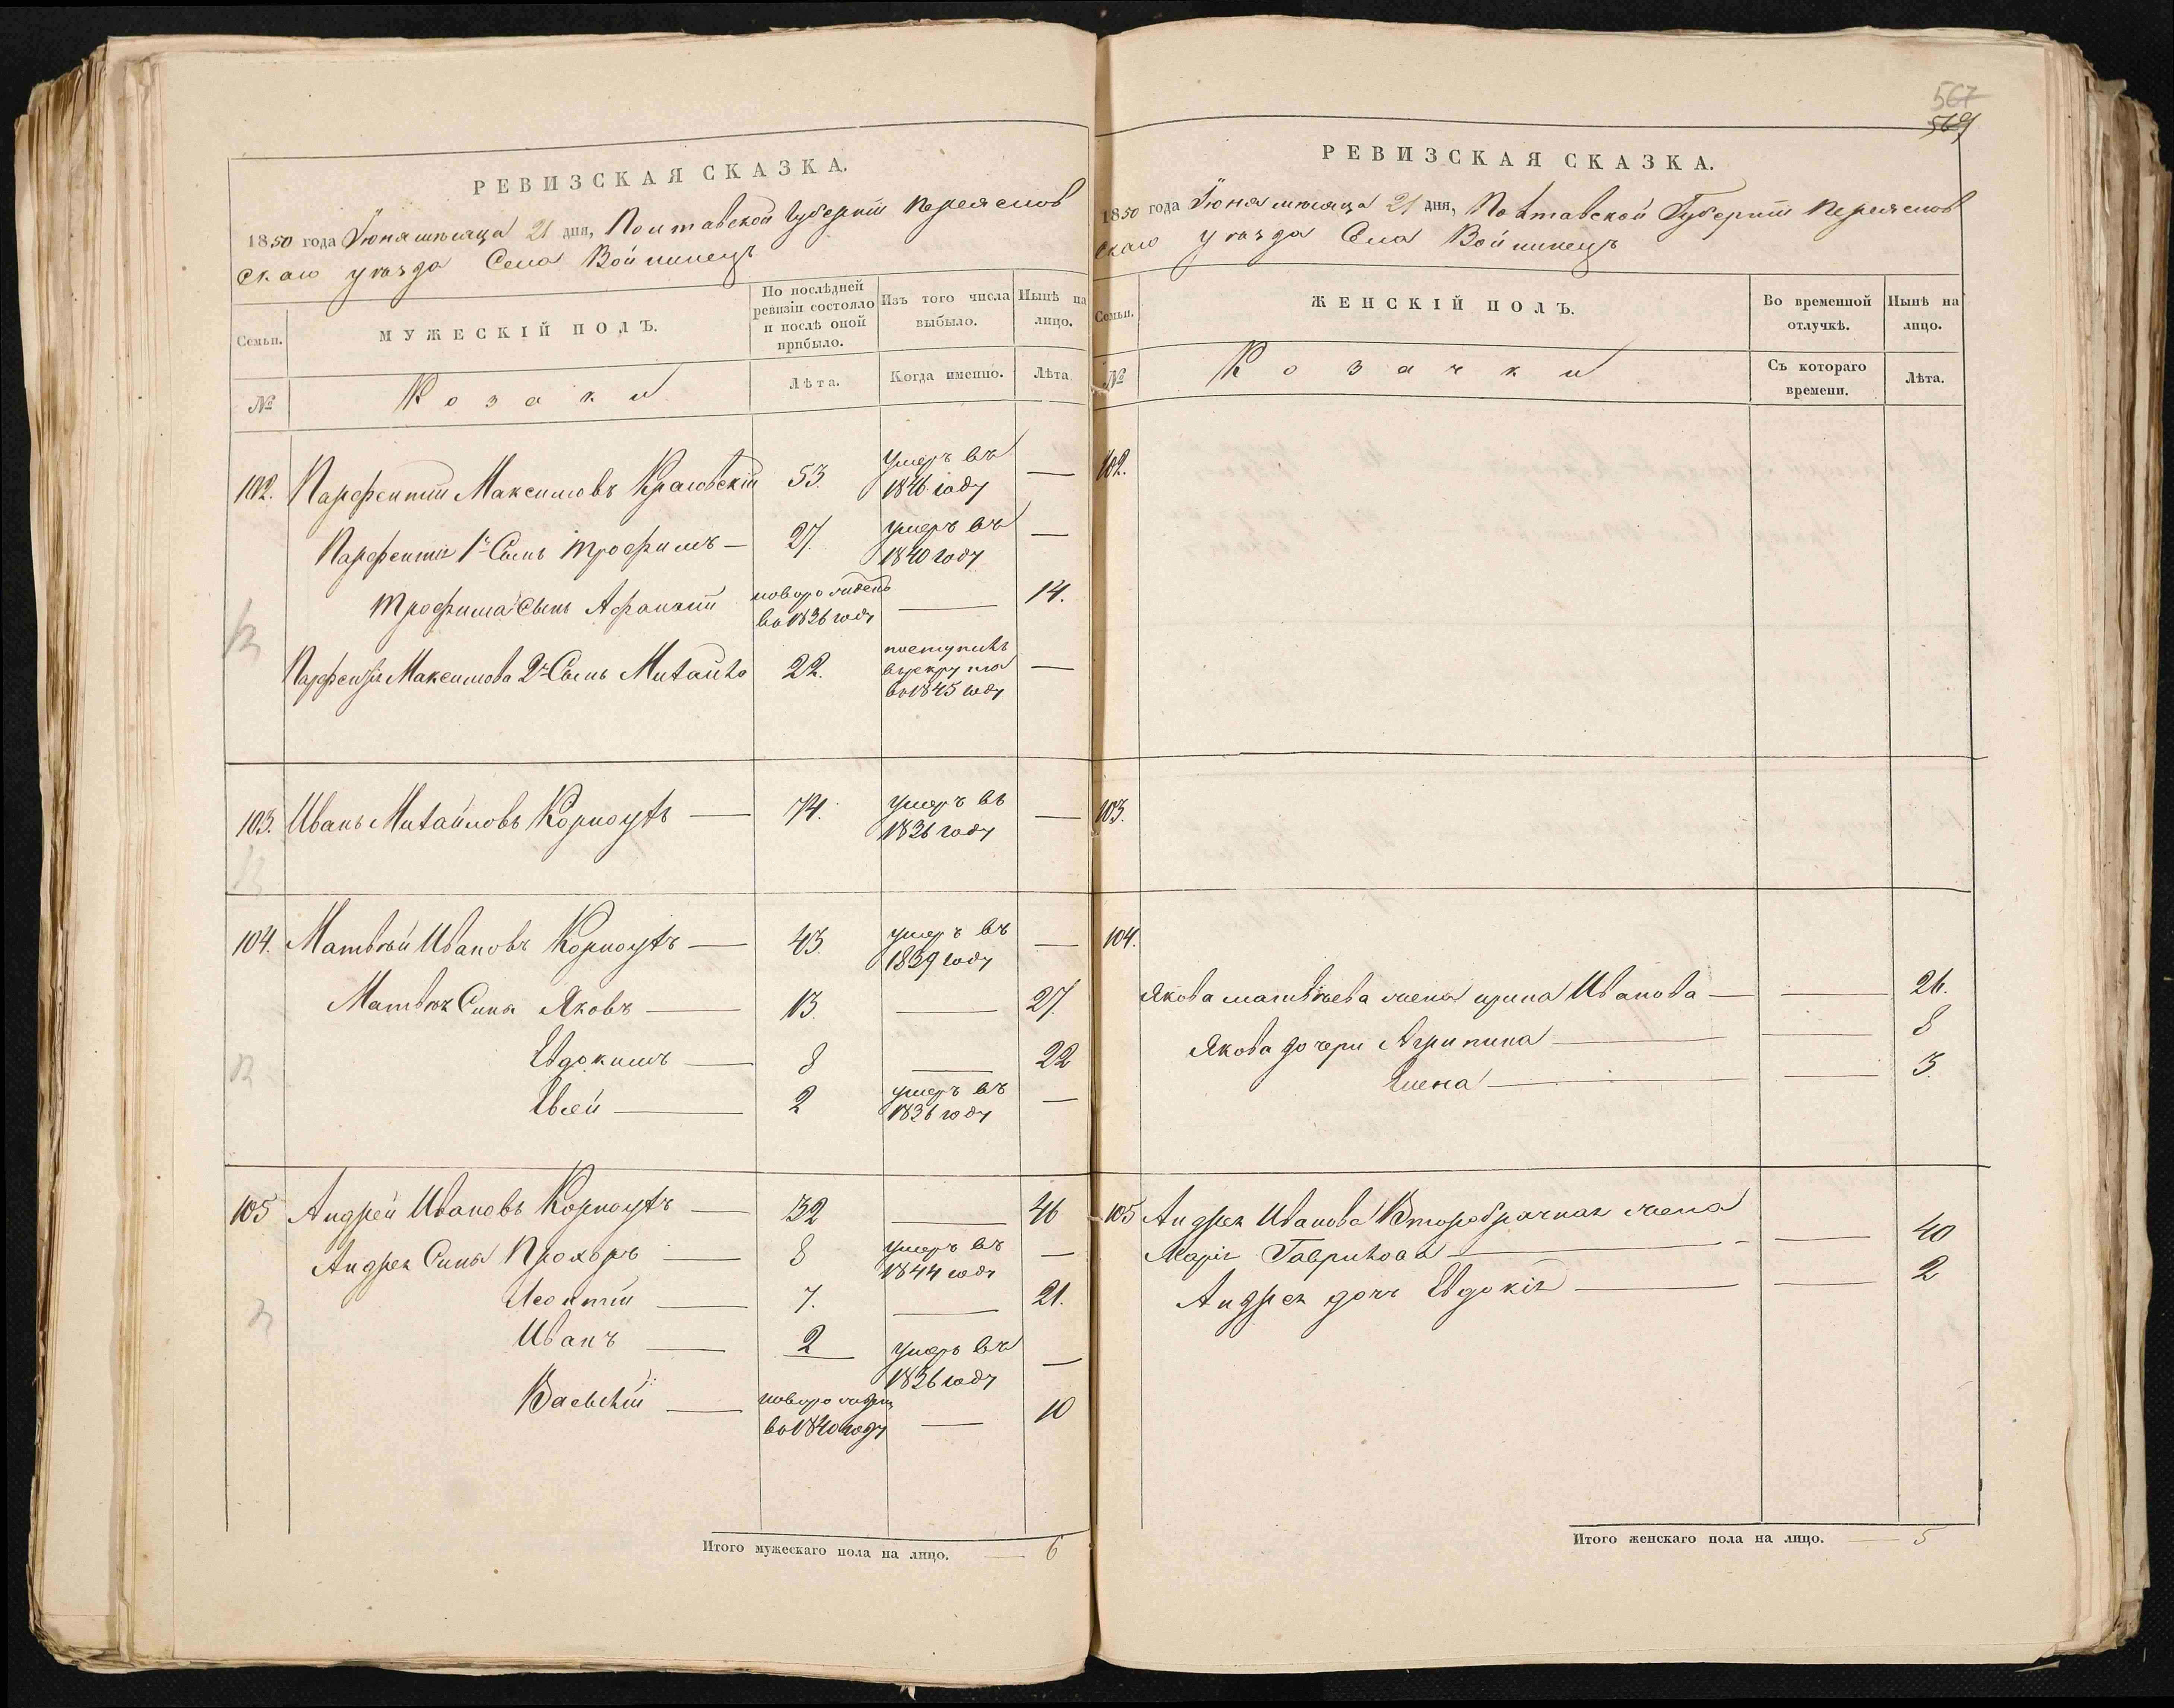 567
569
РЕВИЗСКАЯ СКАЗКА.
1850 года Іюня мѣсяца 21 дня, Полтавской Губерніи Переяслов
скаго уѣзда Села Войтинецъ
Семьи.
МУЖЕСКІЙ ПОЛЪ.
По послѣдней
ревизіи состояло
и послѣ оной
прибыло.
Изъ того числа
выбыло.
Нынѣ на
лицо.
№
Козаки
Лѣта.
Когда именно.
Лѣта.
102. Парфентій Максимовъ 53. умеръ въ
1846 году —
Парфентія 1й Сынъ Трофимъ — 27. умеръ въ
1840 году —
Трофима Сынъ Афанасій новорожденъ
во 1836 году — 14.
Парфентія Максимова 2й Сынъ Михайло 22. поступилъ
въ рекруты
во 1845 году —
103. Иванъ Михайловъ Корноухъ — 74. умеръ въ
1836 году —
104. Матвѣй Ивановъ Корноухъ — 43. умеръ въ
1839 году —
Матвѣя Сыны Яковъ — 13. — 27.
Евдокимъ — 8 — 22
Евсей — 2 умеръ въ
1836 году —
105 Андрей Ивановъ Корноухъ — 32 — 46
Андрея Сыны Прохоръ — 8 умеръ въ
1844 году —
Леонтій — 7. — 21.
Иванъ — 2 умеръ въ
1836 году —
Василій — новорожден
во 1840 году — 10
Итого мужескаго пола на лицо. — 6
РЕВИЗСКАЯ СКАЗКА.
1850 года Іюня мѣсяца 21 дня, Полтавской Губерніи Переяслов
скаго уѣзда Села Войтинецъ
Семьи.
ЖЕНСКІЙ ПОЛЪ.
Во временной
отлучкѣ.
Нынѣ на
лицо.
№
Козачки
Съ котораго
времени.
Лѣта.
102.
103.
104.
Якова Матвѣева жена Ирина Иванова — — 26.
Якова дочери Агрипина — — 8
Елена — — 3.
105 Андрея Иванова Второбрачная жена
Марія Гаврилова — — 40
Андрея дочь Евдокія — — 2
Итого женскаго пола на лицо. — 5